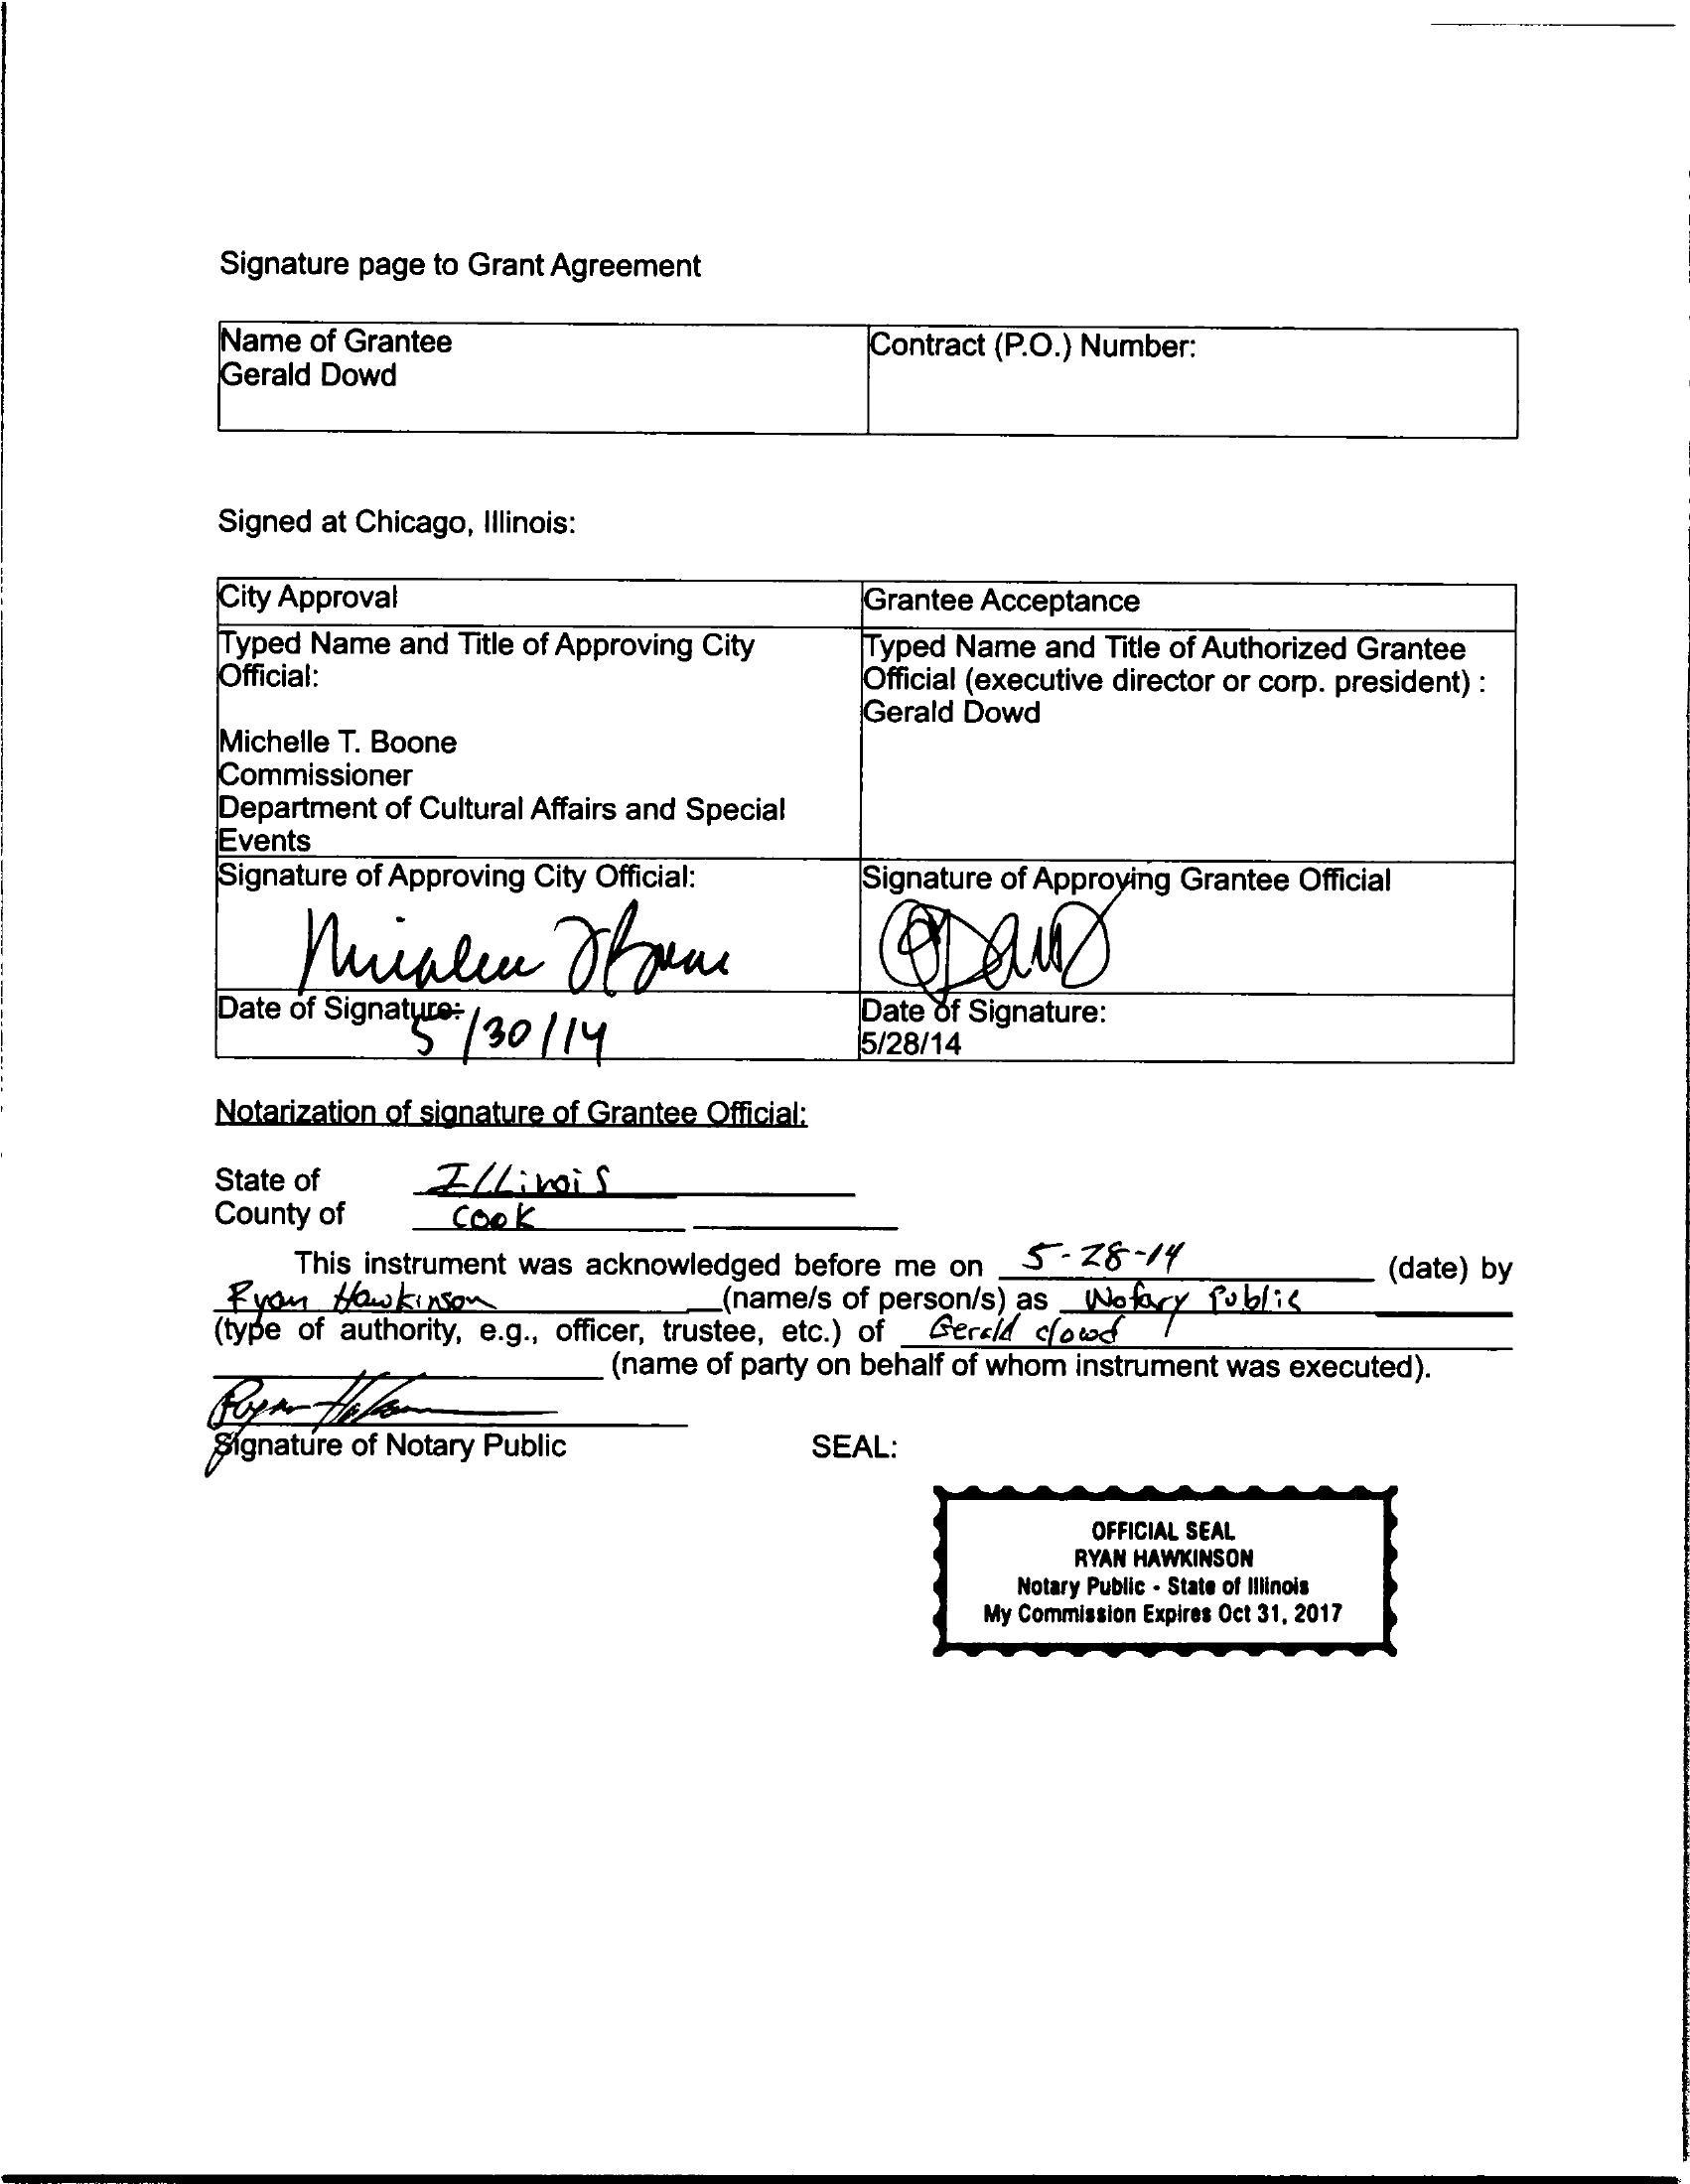 Signature page to Grant Agreement
Name of Grantee
Gerald Dowd
Contract (P.O.) Number:
Signed at Chicago, Illinois:
City Approval
Grantee Acceptance
Typed Name and Title of Approving City
Official:
Michelle T. Boone
Commissioner
Department of Cultural Affairs and Special
Events
Typed Name and Title of Authorized Grantee
Official (executive director or corp. president) :
Gerald Dowd
Signature of Approving City Official:
Signature of Approving Grantee Official
Date of Signature:
5/30/14
Date of Signature:
5/28/14
Notarization of signature of Grantee Official:
State of Illinois
County of Cook
This instrument was acknowledged before me on 5-28-14 (date) by
Ryan Hawkinson (name/s of person/s) as Notary Public
(type of authority, e.g., officer, trustee, etc.) of Gerald dowd
(name of party on behalf of whom instrument was executed).
Signature of Notary Public SEAL:
OFFICIAL SEAL
RYAN HAWKINSON
Notary Public - State of Illinois
My Commission Expires Oct 31, 2017